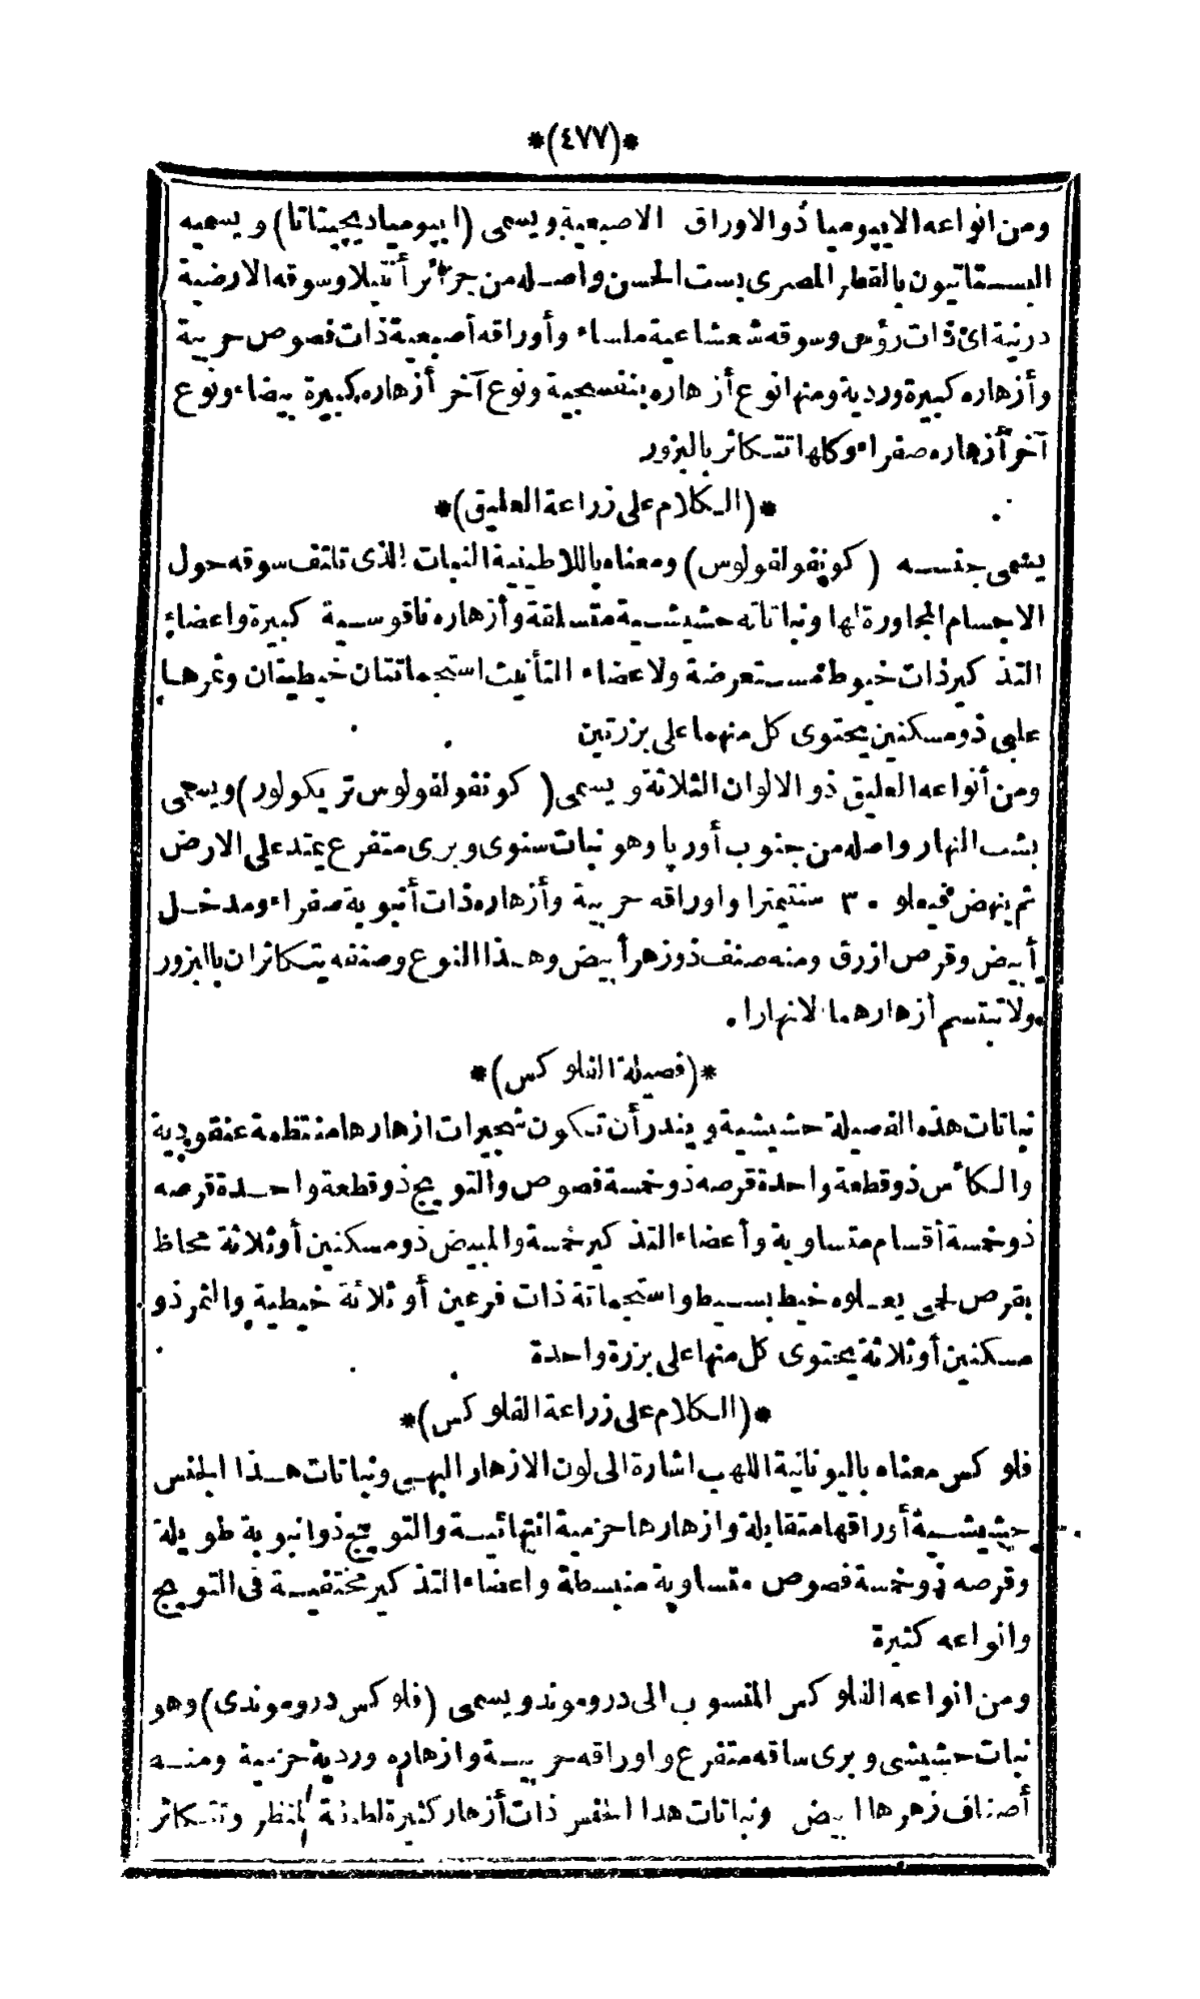 *(٤٧٧)*
ومن انواعه الايپوميا ذو الاوراق الاصبعية ويسمى (ايپوميا ديچيتاتا) ويسميه
البستانيون بالقطر المصرى بست الحسن واصله من جزائر أنتيلا وسوقه الارضية
درنية اى ذات رؤس وسوقه شعشاعية ملساء وأوراقه أصبعية ذات فصوص حربية
وأزهاره كبيرة وردية ومنها نوع أزهاره بنفسجية ونوع آخر أزهاره كبيرة بيضاء ونوع
آخر أزهاره صفراء وكلها تتكاثر بالبزور
*(الكلام على زراعة العليق)*
يسمى جنسه (كونڤولڤولوس) ومعناه باللاطينية النبات الذى تلتف سوقه حول
الاجسام المجاورة لها ونباتاته حشيشية متسلقة وأزهاره ناقوسية كبيرة واعضاء
التذكير ذات خيوط مستعرضة ولاعضاء التأنيث استجماتتان خيطيتان وثمرها
علبى ذو مسكنين يحتوى كل منهما على بزرتين
ومن أنواعه العليق ذو الالوان الثلاثة ويسمى (كونڤولڤولوس تريكولور) ويسمى
بشب النهار واصله من جنوب أورپا وهو نبات سنوى وبرى متفرع يمتد على الارض
ثم ينهض فيعلو ٣٠ سنتيمترا واوراقه حربية وأزهاره ذات أنبوبة صفراء ومدخل
أبيض وقرص ازرق ومنه صنف ذو زهر أبيض وهذا النوع وصنفه يتكاثران بالبزور
ولا تبتسم أزهارهما الا نهارا
*(فصيلة الفلوكس)*
نباتات هذه الفصيلة حشيشية ويندر أن تكون شجيرات ازهارها منتظمة عنقودية
والكأس ذو قطعة واحدة قرصه ذو خمسة فصوص والتويج ذو قطعة واحدة قرصه
ذو خمسة أقسام متساوية وأعضاء التذكير خمسة والمبيض ذو مسكنين أو ثلاثة محاط
بقرص لحمى يعلوه خيط بسيط واستجماتة ذات فرعين أو ثلاثة خيطية والثمر ذو
مسكنين أو ثلاثة يحتوى كل منها على بزرة واحدة
*(الكلام على زراعة الفلوكس)*
فلوكس معناه باليونانية اللهب اشارة الى لون الازهار البهى ونباتات هذا الجنس
حشيشية أوراقها متقابلة وازهارها حزمية انتهائية والتويج ذو انبوبة طويلة
وقرصه ذو خمسة فصوص متساوية منبسطة واعضاء التذكير مختفية فى التويج
وانواعه كثيرة
ومن انواعه الفلوكس المنسوب الى دروموند ويسمى (فلوكس دروموندى) وهو
نبات حشيشى وبرى ساقه متفرع واوراقه حربية وازهاره وردية حزمية ومنه
أصناف زهرها ابيض ونباتات هذا الجنس ذات أزهار كثيرة لطيفة المنظر وتتكاثر